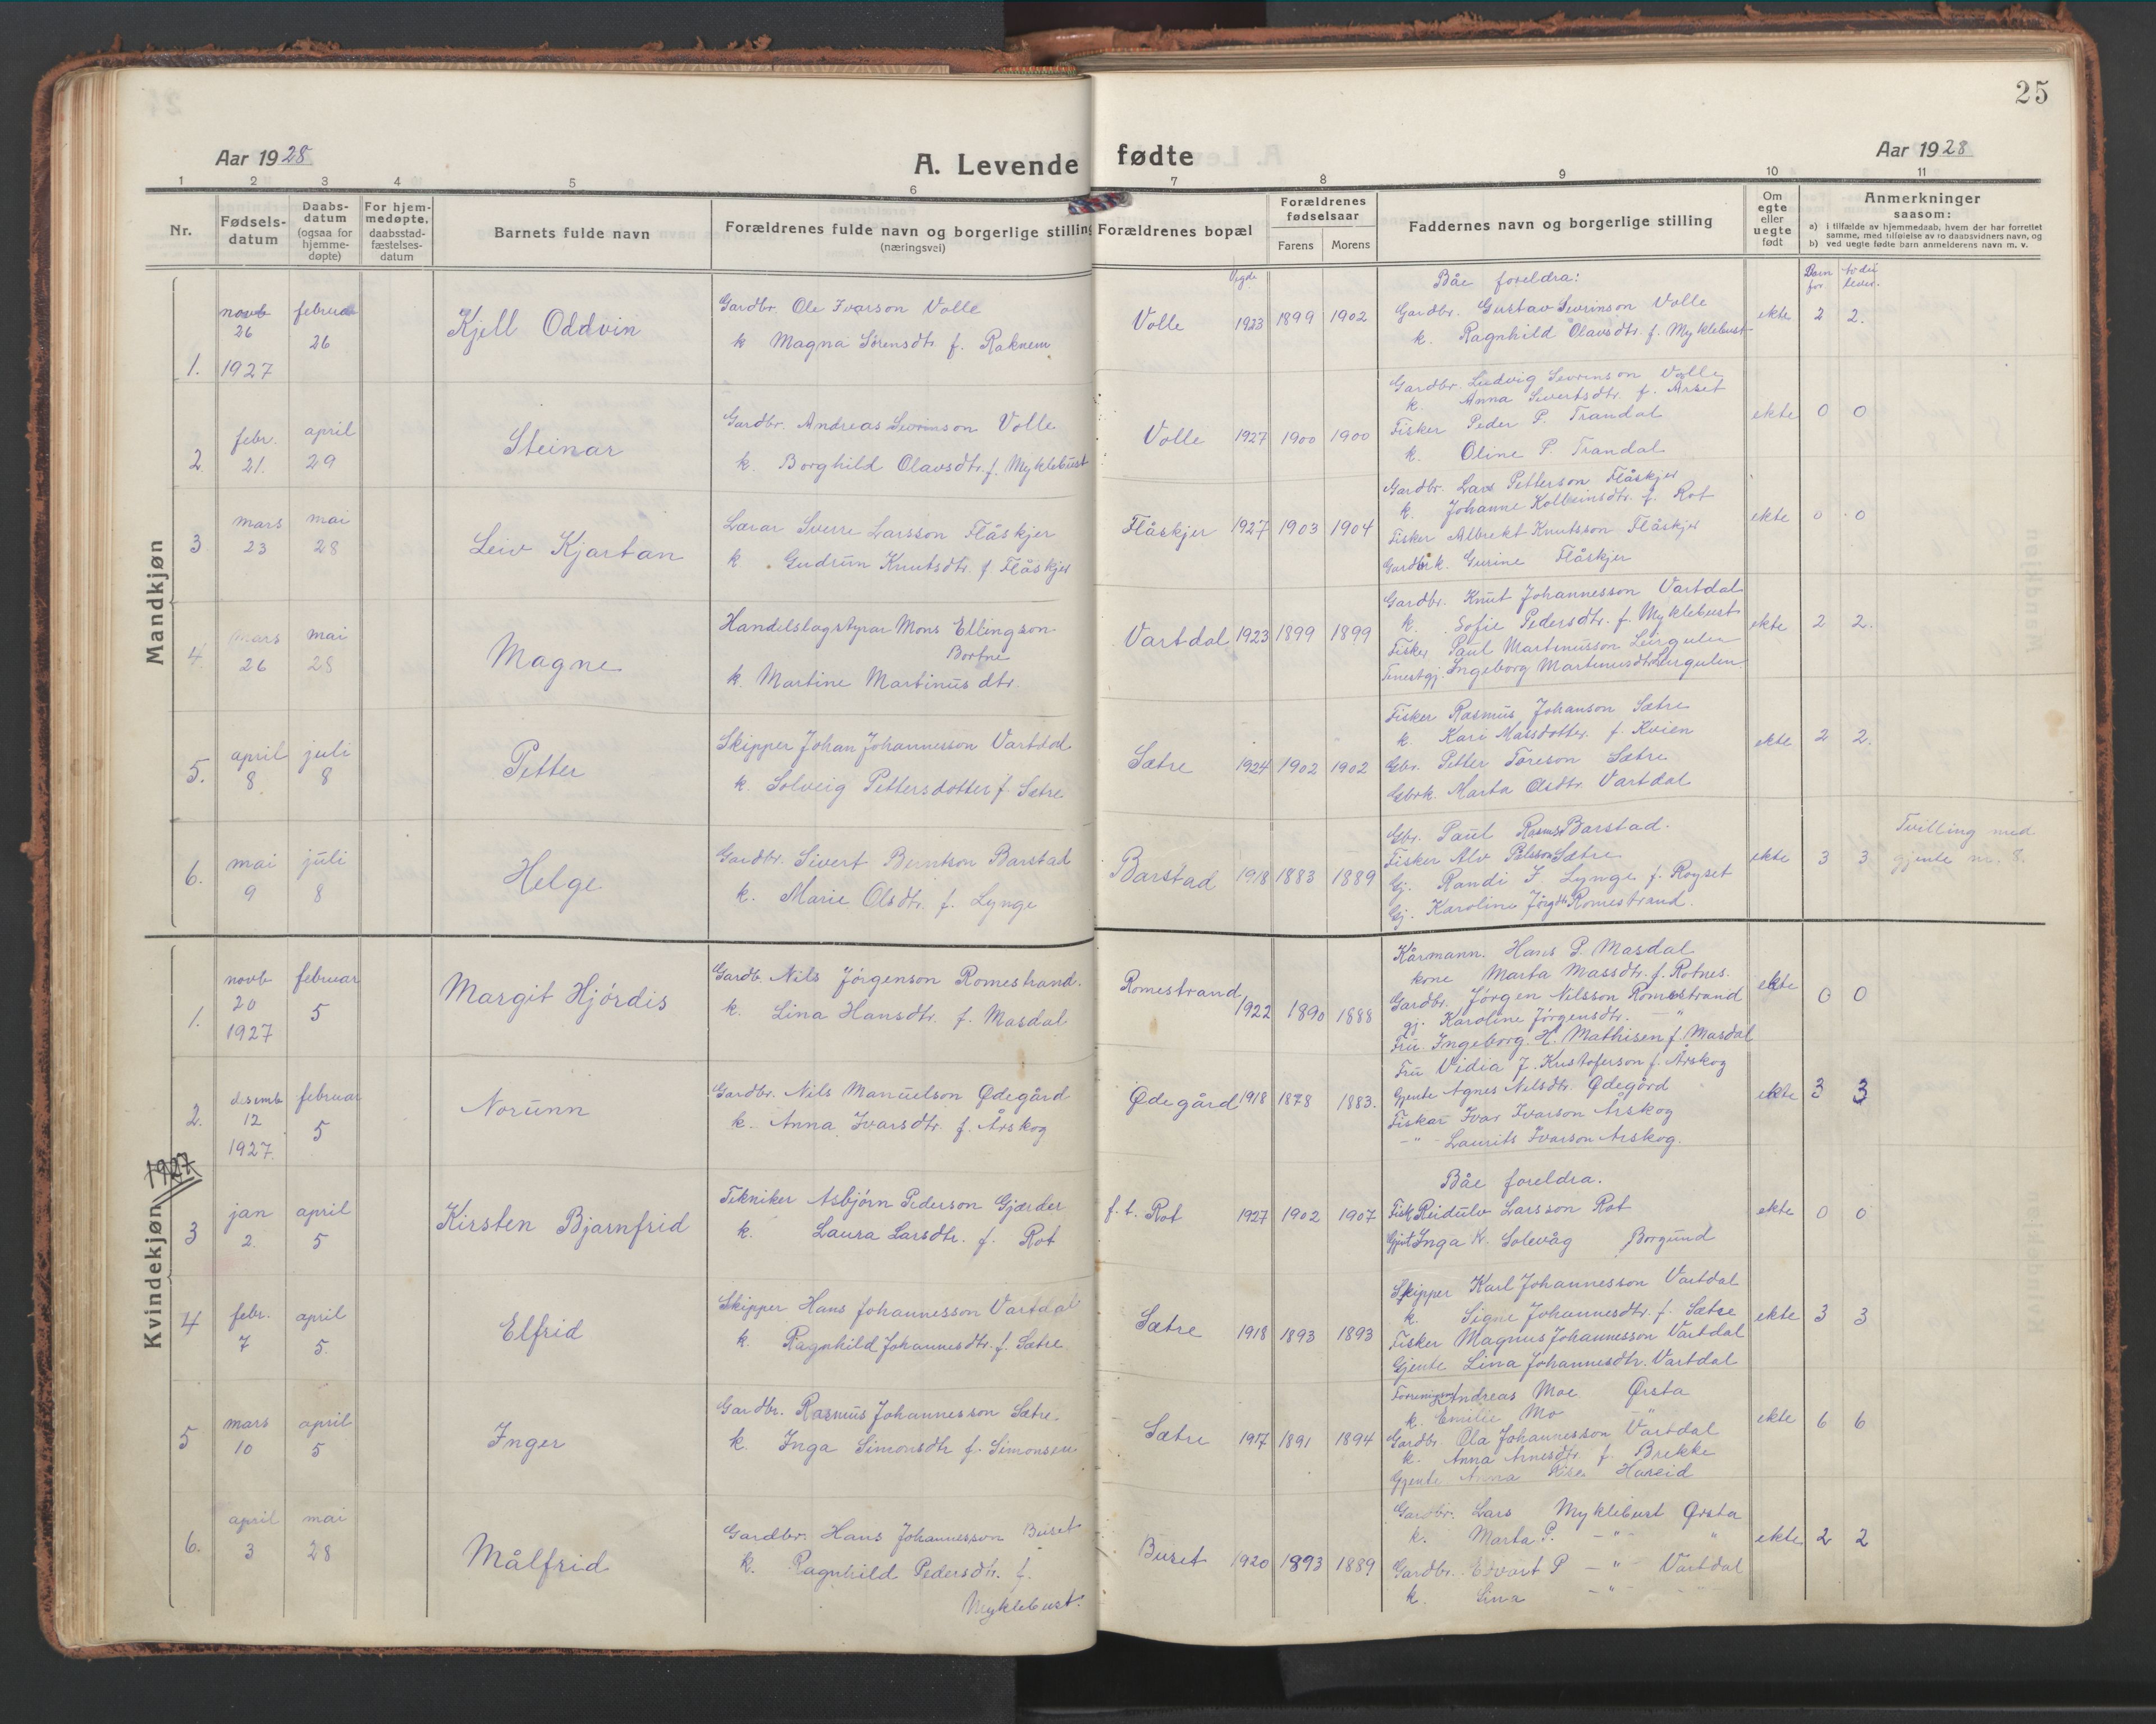 25
Aar 1928
A. Levende fødte
Aar 1928
1 2 3 4 5 6 7 8 9 10 11
Nr.
Fødsels-
datum
Daabs-
datum
(ogsaa for
hjemme-
døpte)
For hjem-
medøpte,
daabsstad-
fæstelses-
datum
Barnets fulde navn
Forældrenes fulde navn og borgerlige stilling
(næringsvei)
Forældrenes bopæl
Forældrenes
fødselsaar
Farens Morens
Faddernes navn og borgerlige stilling
Om
egte
eller
uegte
født
Anmerkninger
saasom:
a) i tilfælde av hjemmedaab, hvem der har forrettet
samme, med tilføielse av to daabsvidners navn, og
b) ved uegte fødte barn anmelderens navn m. v.
Mandkjøn
Vigde
Born før
av dei lever.
1. novb 26 1927
februar 26
Kjell Oddvin
Gardbr. Ole Ivarson Volle
k Magna Sørensdtr. f. Raknem
Volle 1923 1899 1902
Båe foreldra:
Gardbr. Gustav Sevrinson Volle
k. Ragnhild Olavsdtr. f. Myklebust
ekte 2 2.
2 febr. 21.
april 29
Steinar
Gardbr. Andreas Sevrinson Volle
k. Borghild Olavsdtr. f. Myklebust
Volle 1927 1900 1900
Gardbr. Ludvig Sevrinson Volle
k. Anna Sivertsdtr. f. Årset
Fisker Peder P. Trandal
k. Oline P. Trandal
ekte 0 0
3 mars 23
mai 28
Leiv Kjartan
Lærar Sverre Larsson Flåskjer
k. Gudrun Knutsdtr. f. Flåskjer
Flåskjer 1927 1903 1904
Gardbr. Lars Petterson Flåskjer
k. Johanne Kolbeinsdtr. f. Rot
Fisker Albrekt Knutsson Flåskjer
Gardbrk. Gurine Flåskjer
ekte 0 0
4. mars 26
mai 28
Magne
Handelslagstyrar Mons Ellingson
Bortne
k. Martine Martinusdtr.
Vartdal 1923 1899 1899
Gardbr. Knut Johannesson Vartdal
k. Sofie Pedersdtr. f. Myklebust
Fisker Paul Martinusson Leirgulen
Tenestgj. Ingeborg Martinusdtr. Leirgulen
ekte 2 2.
5. april 8
juli 8
Petter
Skipper Johan Johannesson Vartdal
k. Solveig Pettersdotter f. Sætre
Sætre 1924 1902 1902
Fisker Rasmus Johanson Sætre
k. Kari Massdotter. f. Kvien
Gbr. Petter Toreson Sætre
Gbrk. Marta Olsdtr. Vartdal
ekte 2 2.
6. mai 9
juli 8
Helge
Gardbr. Sivert Berntson Barstad
k. Marie Olsdtr. f. Lynge
Barstad 1918 1883 1889
Gbr. Paul Rasms. Barstad.
Fisker Alv Palsson Sætre
Gj. Randi J. Lynge f. Royset
Gj. Karoline Jørgdtr Romestrand.
ekte 3 3
Tvilling med
gjente nr. 8.
Kvindekjøn
1927
1. novb 20 1927
februar 5
Margit Hjørdis
Gardb. Nils Jørgenson Romestrand.
k. Lina Hansdtr. f. Masdal
Romestrand 1922 1890 1888
Kårmann. Hans P. Masdal
kone Marta Massdtr. f. Rotnes.
Gardbr. Jørgen Nilsson Romestrand
gj. Karoline Jørgensdtr. — " —
Fru. Ingeborg. H. Mathisen f. Masdal
ekte 0 0
2. desemb 12 1927.
februar 5
Norunn
Gardbr. Nils Manuelson Ødegård
k. Anna Ivarsdtr. f. Årskog
Ødegård 1918 1878 1883.
Fru Vidia J. Kristoferson f. Årskog
Gjente Agnes Nilsdtr. Ødegård
Fisker Ivar Ivarson Årskog
— " — Laurits Ivarson Årskog.
ekte 3 3
3 jan 2.
april 5
Kirsten Bjarnfrid
Tekniker Asbjørn Pederson Gjærder
k. Laura Larsdtr. f. Rot
f. t. Rot 1927 1902 1907
Båe foreldra.
Fisk. Reidulv Larsson Rot
Gjent. Inga K. Solevåg Borgund
ekte 0 0
4 febr. 7
april 5.
Elfrid
Skipper Hans Johannesson Vartdal
k. Ragnhild Johannesdtr. f. Sætre
Sætre 1918 1893 1893
Skipper Karl Johannesson Vartdal
k. Signe Johannesdtr. f. Sætre
Fisker Magnus Johannesson Vartdal
Gjente Lina Johannesdtr. Vartdal
ekte 3 3
5 mars 10
april 5
Inger
Gardbr. Rasmus Johannesson Sætre.
k. Inga Simonsdtr f. Simonsen
Sætre 1917 1891 1894
Andreas Moe Ørsta
k. Emilie Mo — " —
Gardbr. Ola Johannesson Vartdal
k. Anna Arnesdtr f. Brekke
Gjente Anna Hareid
ekte 6 6
6. april 3
mai 28
Målfrid
Gardbr. Hans Johannesson Buset
k. Ragnhild Pedersdtr. f.
Myklebust.
Buset 1920 1893 1889
Gardbr. Lars Myklebust Ørsta
k. Marta P. — " — "
Gardbr. Edvart P — " — Vartdal
k. Lina — " —
ekte 2 2